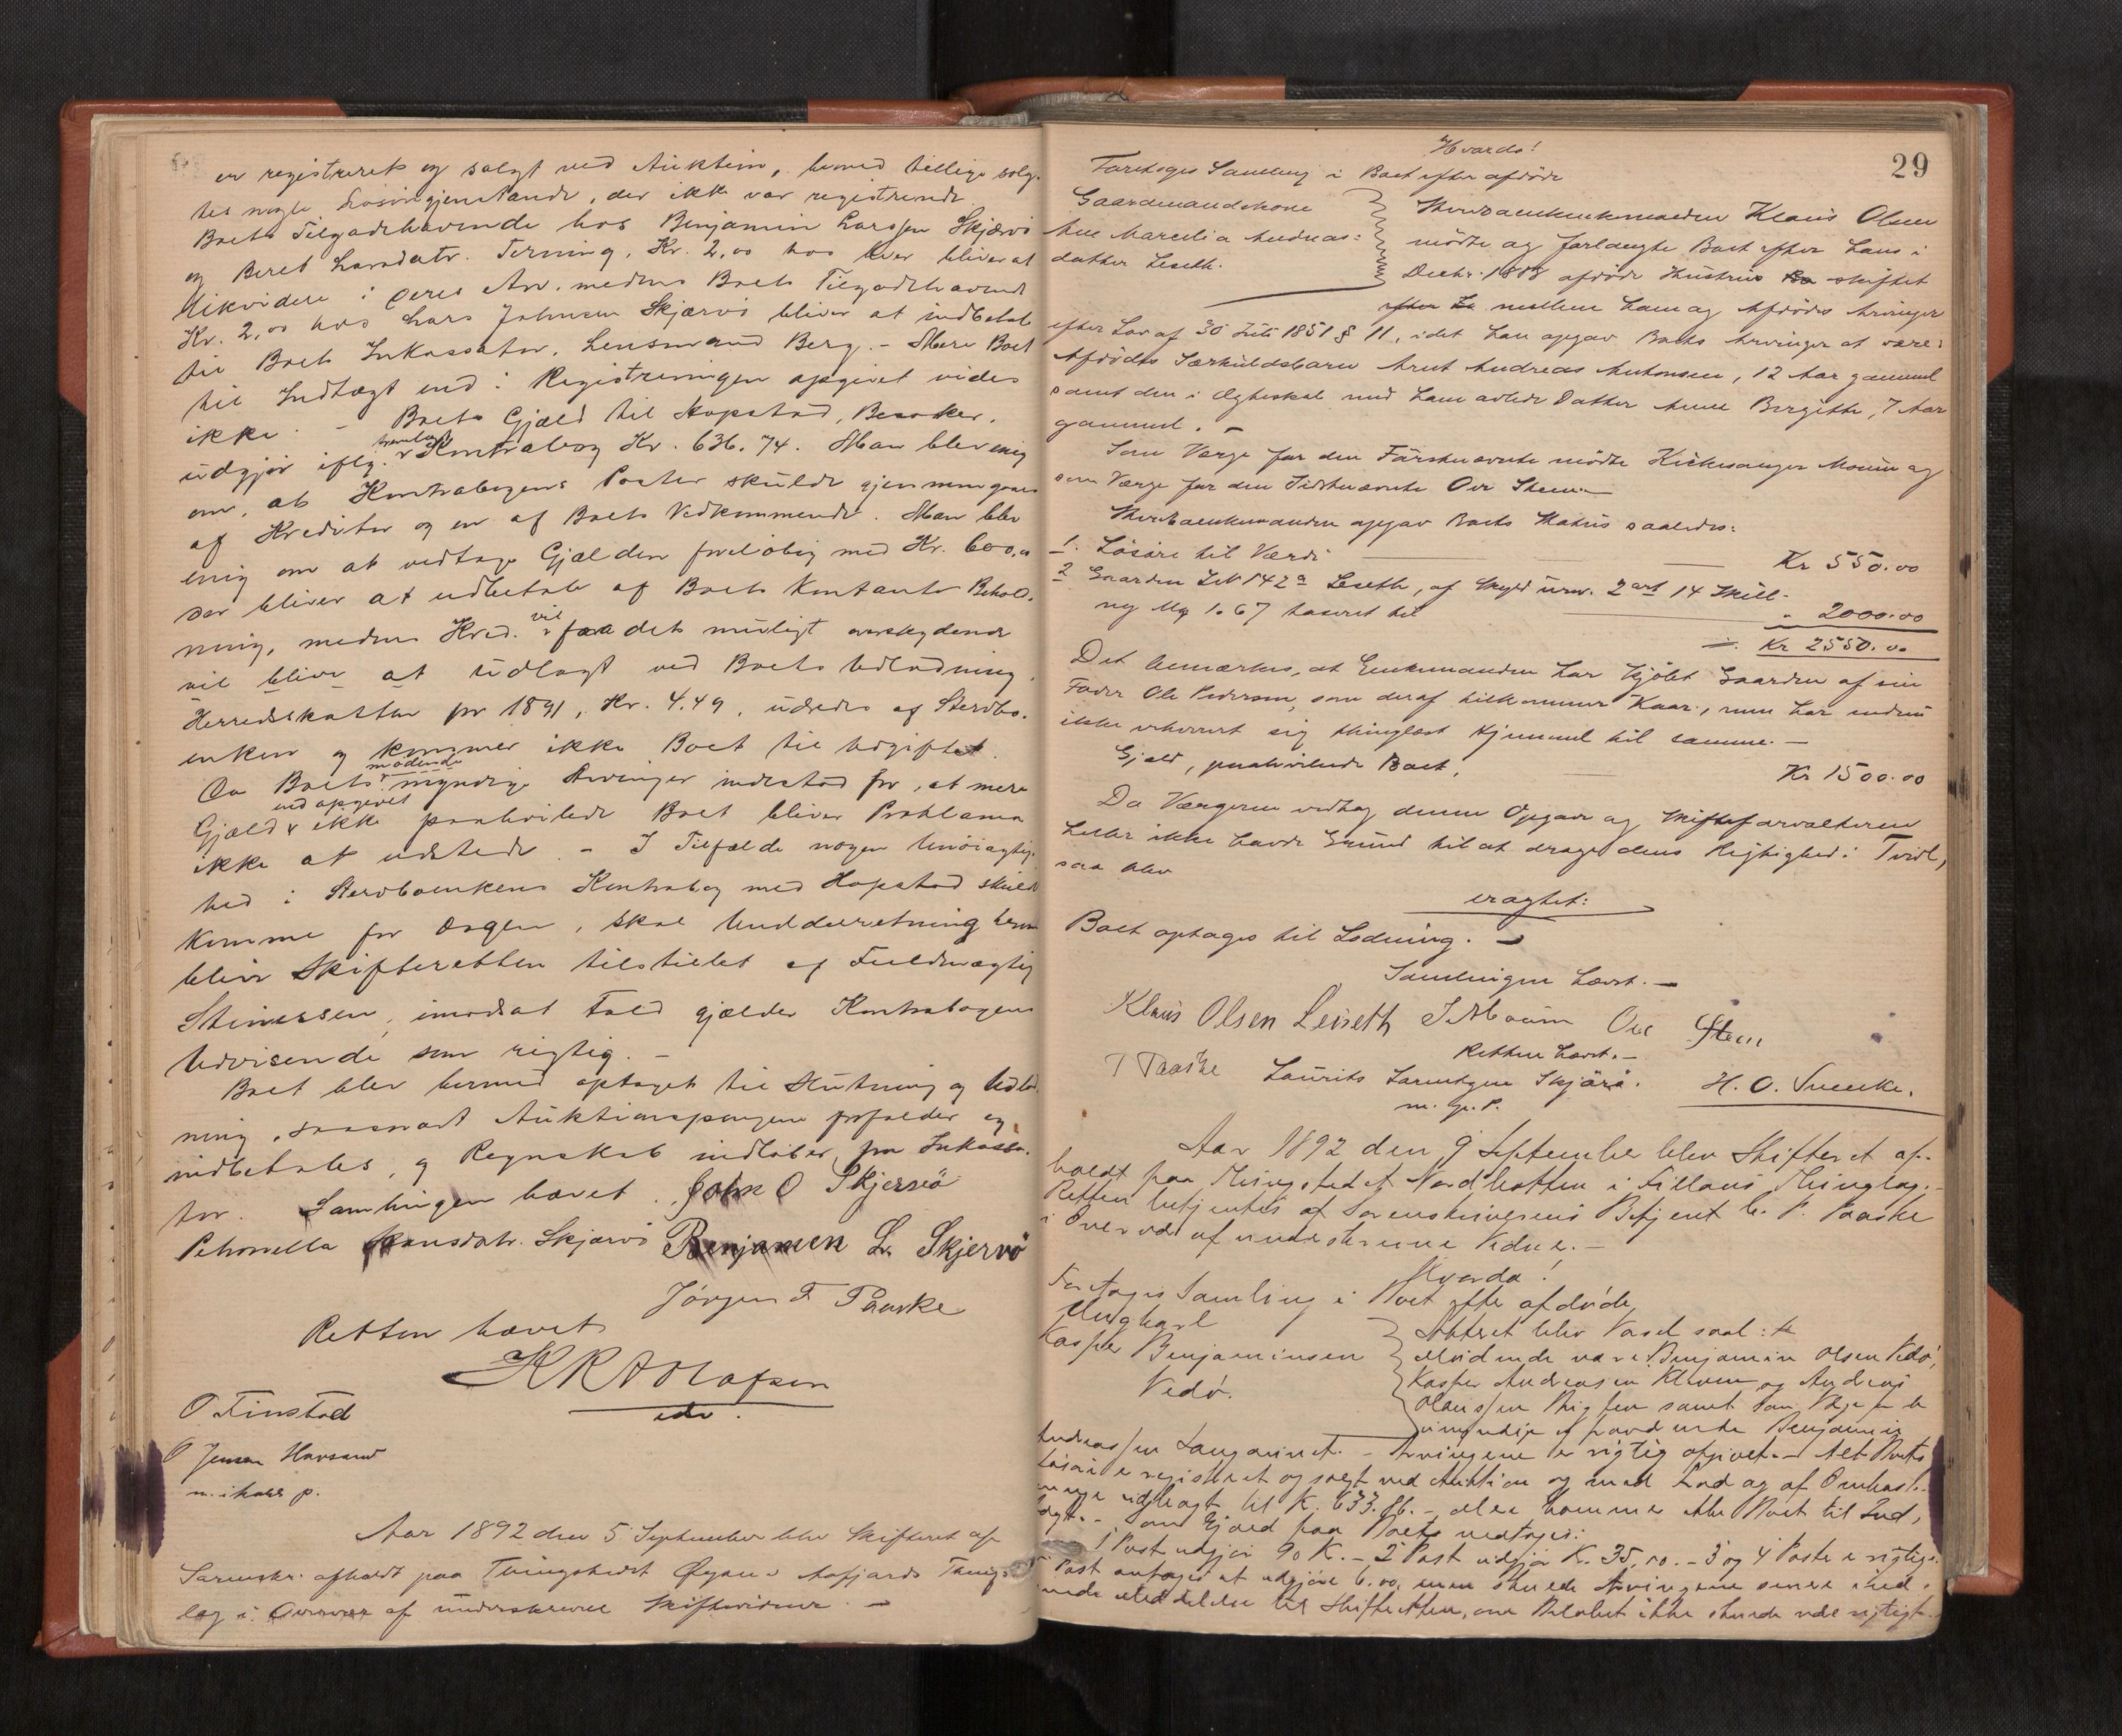 er registreret og solgt ved Auktion, hvorved tillige solg-
tes nogle Løsøregjenstande, der ikke var registrerede.
Boets Tilgodehavende hos Benjamin Larssen Skjærvö
og Beret Larsdatr. Terning, Kr. 2,00 hos hver bliver at
likvidere i deres Arv. medens Boets Tilgodehavende
Kr. 2,00 hos Lars Johnsen Skjærvö bliver at indbetale
til Boets Inkassator, Lensmand Berg. - Mere Boet
til Indtægt end i Registreringen opgivet vides
ikke. - Boets Gjæld til Hopstad, Besaker,
udgjør iflg. fremlagt Kontrabog Kr. 636.74. Man blev enig
om, at Kontrabogens Poster skulde gjennemgaaes
af Kreditor og en af Boets Vedkommende. Man blev
enig om at vedtage Gjælden foreløbig med Kr. 600,00
der bliver at udbetale af Boets Kontante Behold-
ning, medens Kred. vil faa det muligt overskydende
vil blive at udlagt ved Boets Udlodning.
Herredskatten pr 1891, Kr. 4.49, udredes af Stervbo-
enken og kommer ikke Boet til Udgiftet.
Da Boets mødende myndige Arvinger indestod for, at mere
Gjæld end opgivet ikke paahvilede Boet bliver Proklama
ikke at udstede. - I Tilfælde nogen Unøiagtig-
hed i Stervboenkens Kontrabog med Hopstad skulde
komme for Dagen, skal Underretning herom
blive Skifteretten tilstillet af Fuldmægtig
Stinessen, imodsat Fald gjælder Kontrabogens
Udvisende som rigtig. -
Boet blev hermed optaget til Slutning og Udlod-
ning, saasnart Auktionspengene forfalder og
indbetales, og Regnskab indløber fra Inkassa-
tor. Samlingen hævet. John O Skjervö
Petronella Hansdatr. Skjærvö Benjamen Lr. Skjervö
Jørgen F Paaske
Retten hævet
K R A Olafsen
edv.
O Finstad
O Jensen Harsund
m. ihold p.
Aar 1892 den 5 September blev Skifteret af
Sorenskr. afholdt paa Thingstedet Øyan i Aafjords Thing-
lag i Overvær af underskrevne Skiftevidner. -
29
Hvorda!
Foretoges Samling i Boet efter afdøde
Gaardmandskone
Ane Marcelia Andreas-
datter Leseth.
Stervboenkemanden Klaus Olsen
mødte og forlangte Boet efter hans i
Decbr. 1888 afdøde Hustrue skiftet
mellem ham og Afdødes Arvinger
efter Lov af 30 Juli 1851 § 11, idet han opgav Boets Arvinger at være:
Afdødes Særkuldsbarn Arnt Andreas Antonsen, 12 Aar gammel
samt den i Ægteskab med ham avlede Datter Anne Birgitte, 7 Aar
gammel. -
Som Værge for den Førstnævnte mødte Kirkesanger Moum og
som Værge for den Sidstnævnte Ole Steen. -
Stervboenkemanden opgav Boets Status saaledes:
1. Løsøre til Værdi Kr 550.00
2 Gaarden L.N 142 a Leseth, af Skyld urev. 2 ort 14 Skill-
ing Mk 1.67 taxeret til " 2000.00
÷ Kr 2550.00
Det bemærkes, at Enkemanden har kjøbt Gaarden af sin
Fader Ole Pedersen, som deraf tilkommer Kaar, men har endnu
ikke erhvervet sig thinglæst Hjemmel til samme. -
Gjæld, paahvilende Boet, Kr 1500.00
Da Værgerne vedtog denne Opgave og Skifteforvalteren
heller ikke havde Grund til at drage dens Rigtighed i Tvivl,
saa blev
eragtet:
Boet optages til Lodning. -
Samlingen hævt. -
Klaus Olsen Leiseth J Moum Ole Steen
Retten hævt. -
T Paaske Laurits Larentzen Skjärö. H. O. Sneeke.
m. p. P.
Aar 1892 den 9 September blev Skifteret af-
holdt paa Thingstedet Nordbotten i Fillans Thinglag. -
Retten betjentes af Sorenskriverens Betjent C. P. Paaske
i Overvær af underskrevne Vidne. -
Hvorda!
Foretoges Samling i Boet efter afdøde
Ungkarl
Kasper Benjaminsen
Vedö.
Mødende var: Benjamin Olsen Vedö,
Kasper Andreasen Kleven og Andreas
Olaussen samt som Værge for de
umyndige Benjamin
Andreassen Langaunet. - Arvingene er rigtig opgivet. - Alt Boets
Løsøre er registreret og solgt ved Auktion og med Fradrag af Omkost-
ninge udbragt til K. 633.86. - Mere kommer ikke Boet til Ind-
tægt. - Som Gjæld paa Boet vedtoges:
1 Post udgjør 90 K. - 2 Post udgjør K. 35,00. - 3 og 4 Poste er rigtige.
5 Post antoges at udgjøre 6.00, men skulde Arvingene senere ind-
sende Meddelelse til Skifteretten, om Beløbet ikke skulde være rigtigt.